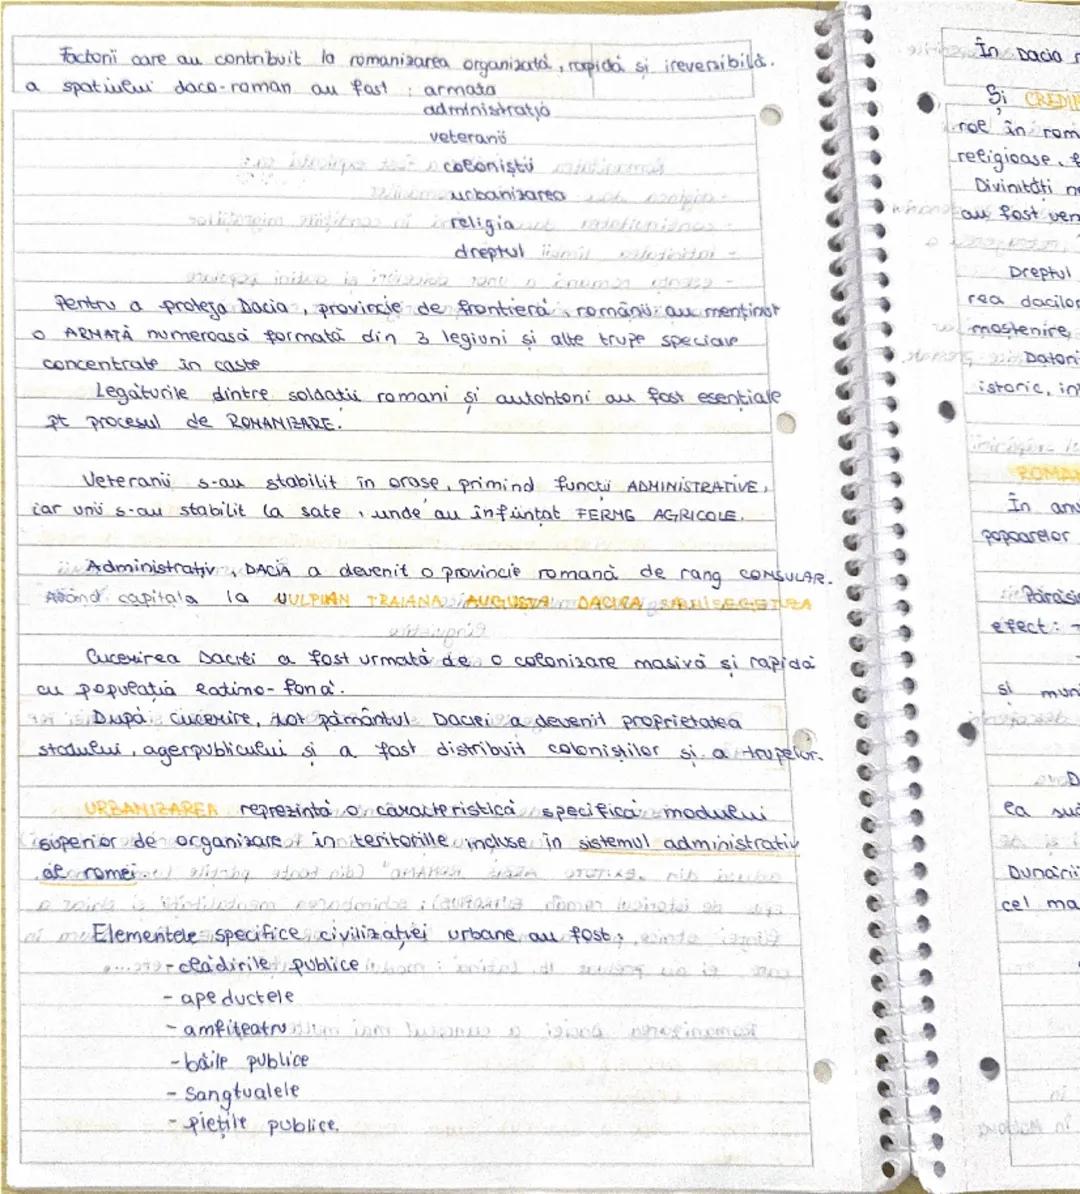 Factorii care au contribuit la romanizarea organizată, rapidă și ireversibilă.
a spațiului daco-roman au fost : armata
administrația
veteranii
coloniștii
urbanizarea
religia
dreptul
Pentru a proteja Dacia, provincie de frontieră, românii au menținut
o ARMATĂ numeroasă formată din 3 legiuni și alte trupe speciale
concentrate în caste
Legăturile dintre soldații romani și autohtoni au fost esențiale
pt procesul de ROMANIZARE.
Veteranii s-au stabilit în orașe, primind funcții ADMINISTRATIVE,
iar unii s-au stabilit la sate, unde au înființat FERME AGRICOLE.
Administrativ, DACIA a devenit o provincie romană de rang CONSULAR.
Având capitala la TRAIANA AUGUSTA DACICA
Cucerirea Daciei a fost urmată de o colonizare masivă și rapidă
cu populația latino-fonă.
După cucerire, tot pământul Daciei a devenit proprietatea
statului, agerpublicului și a fost distribuit coloniștilor și a trupelor.
URBANIZAREA reprezintă o caracteristică specifică modului
superior de organizare în teritoriile incluse în sistemul administrativ
al romei
Elementele specifice civilizației urbane au fost:
- clădirile publice
- apeductele
- amfiteatru
- băile publice
- Sangtualele
- piețile publice.
În Dacia
Și
rol în rom
religioase,
Divinități
au fost ven
Dreptul
rea dacilor
moștenire,
Datori
istoric, în
ROMAN
În anu
popoarelor
Părăsi
efect: -
și muni
D
la sud
Dunării
cel ma